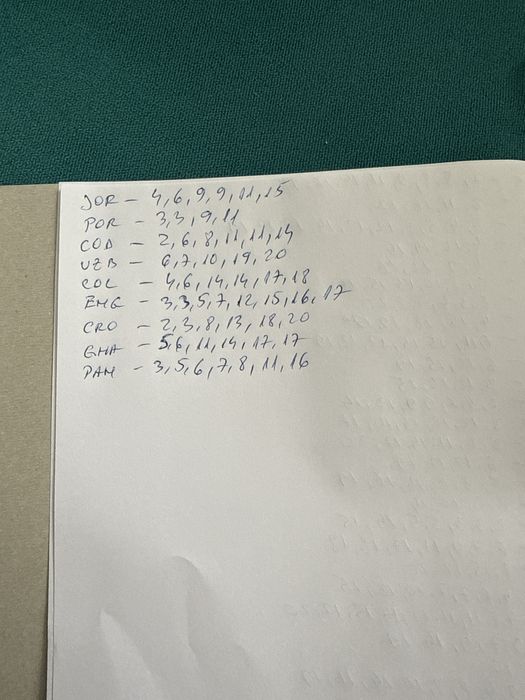 JOR – 4, 6, 9, 9, 11, 15
POR – 3, 3, 9, 11
COD – 2, 6, 8, 11, 11, 14
UZB – 6, 7, 10, 19, 20
COL – 4, 6, 14, 14, 17, 18
ENG – 3, 3, 5, 7, 12, 15, 16, 17
CRO – 2, 3, 8, 13, 18, 20
GHA – 5, 6, 11, 14, 17, 17
PAN – 3, 5, 6, 7, 8, 11, 16